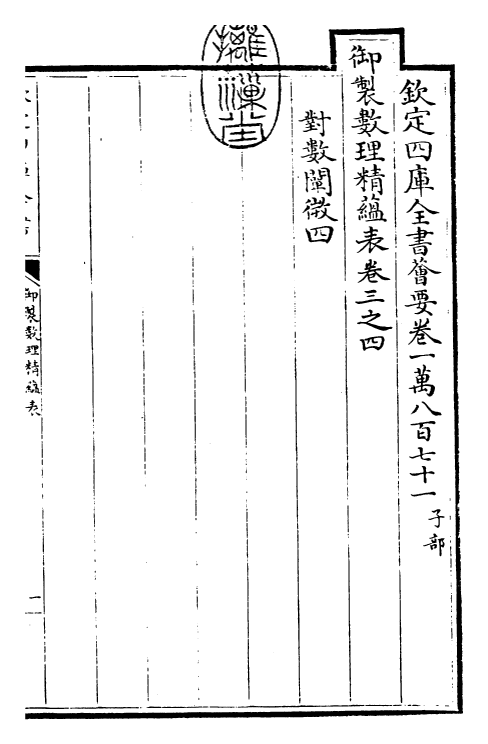 欽定四庫全書薈要卷一萬八百七十一 子部
御製數理精藴表卷三之四
對數闡微四
御製數理精藴表
一